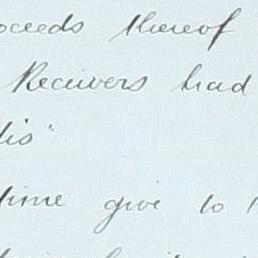 oceeds thereof
Receivers had
time give to